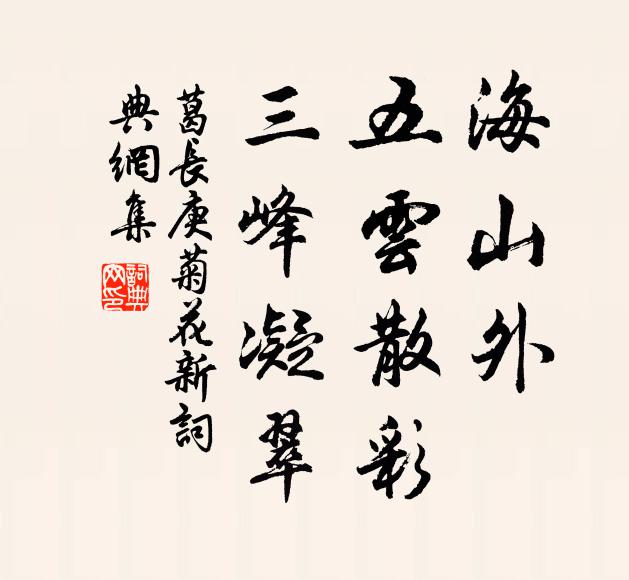 海山外
五雲散彩
三峰凝翠
葛長庚菊花新詞
典網集
詞典网印